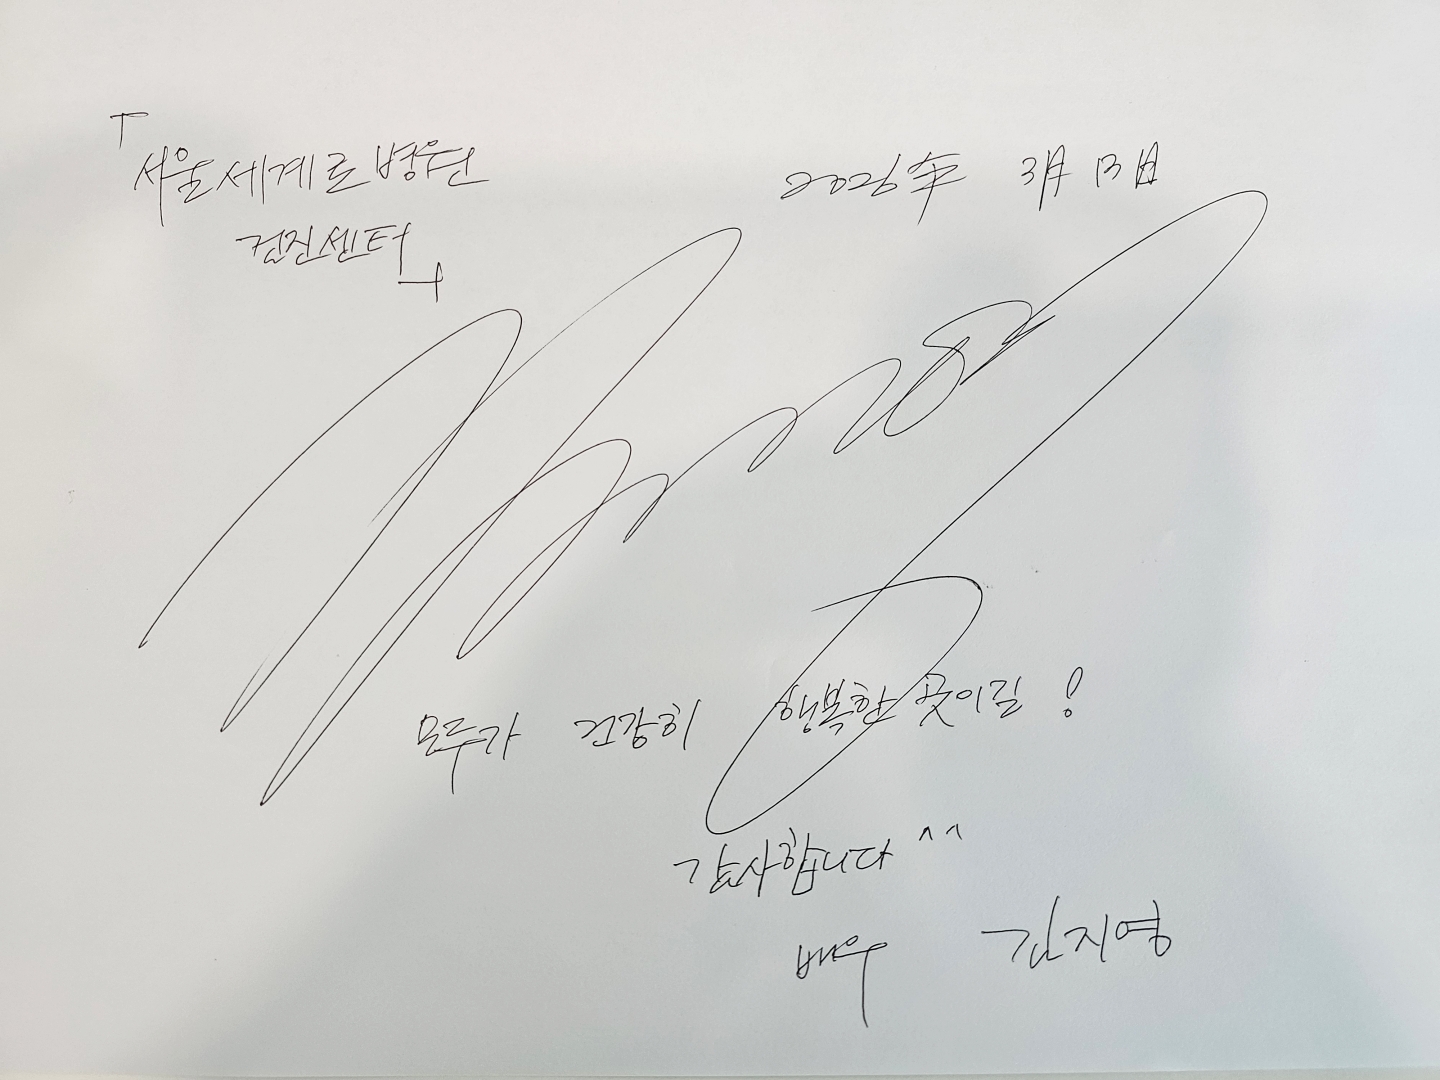 「서울세계로병원
건진센터」
2026年 3月 13日
모두가 건강히 행복한 곳이길 !
감사합니다 ^^
배우 김지영